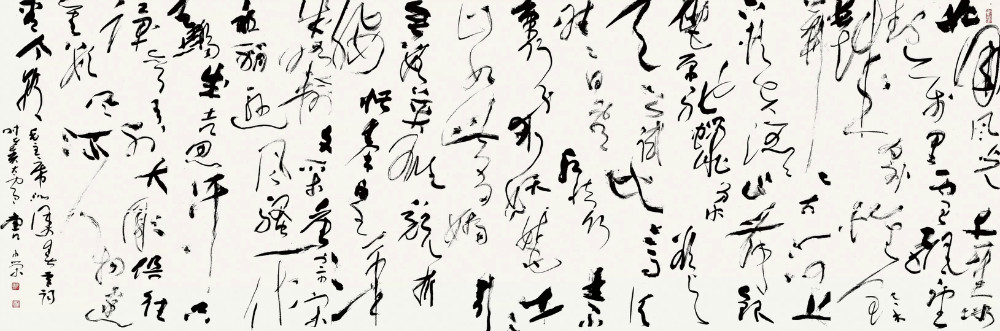 北国風光千里冰
封万里雪飘望
长城内外惟余
莽莽大河上
下顿失滔滔山舞银
蛇原驰蜡象欲与
天公试比高须
晴日看红装素
裹分外妖娆江
山如此多娇引
无数英雄竞折
腰惜秦皇汉武
略输文采唐宗宋
祖稍逊风骚一代
天骄成吉思汗只
识弯弓射大雕俱往
矣数风流人物还
看今朝
毛主席沁园春雪词